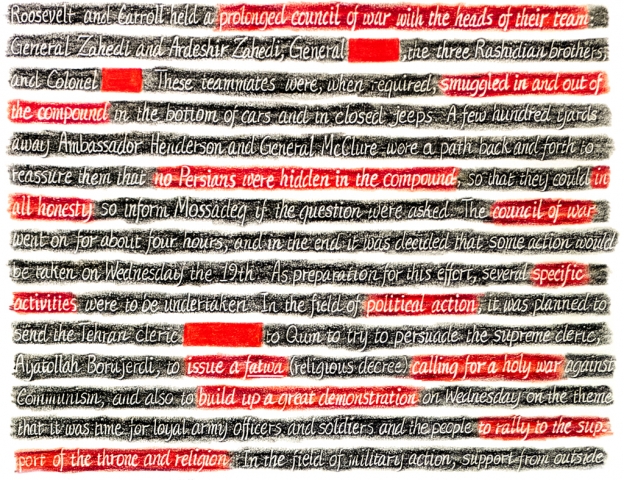 Roosevelt and Carroll held a prolonged council of war with the heads of their team:
General Zahedi and Ardeshir Zahedi, General , the three Rashidian brothers,
and Colonel . These teammates were, when required, smuggled in and out of
the compound in the bottom of cars and in closed jeeps. A few hundred yards
away Ambassador Henderson and General McClure wore a path back and forth to
reassure them that no Persians were hidden in the compound, so that they could in
all honesty so inform Mossadeq if the question were asked. The council of war
went on for about four hours, and in the end it was decided that some action would
be taken on Wednesday the 19th. As preparation for this effort, several specific
activities were to be undertaken. In the field of political action, it was planned to
send the Tehran cleric to Qum to try to persuade the supreme cleric,
Ayatollah Borujerdi, to issue a fatwa (religious decree) calling for a holy war against
Communism, and also to build up a great demonstration on Wednesday on the theme
that it was time for loyal army officers and soldiers and the people to rally to the sup-
port of the throne and religion. In the field of military action, support from outside